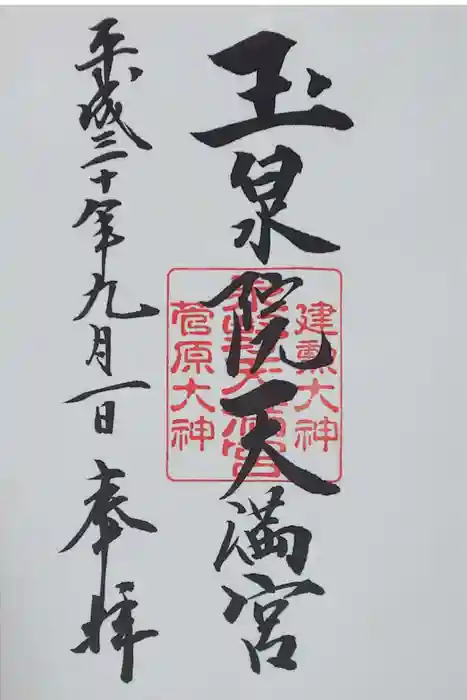 玉泉院天満宮
建勲大神
菅原大神
平成三十年九月一日 奉拝